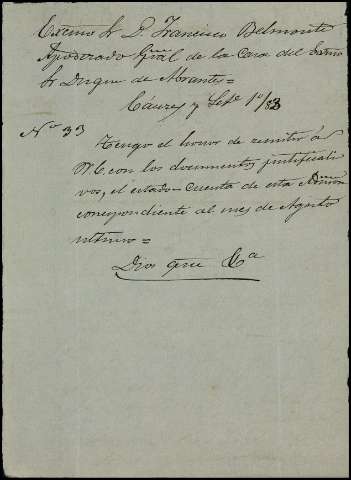 Excmo Sr D. Francisco Belmonte
Apoderado Gral de la Casa del Exmo
Sr Duque de Abrantes =
Cáceres y Sete 1º/83
Nº 33
Tengo el honor de remitir á
V.E. con los documentos justificati
vos, el estado-cuenta de esta Admon
correspondiente al mes de Agosto
ultimo =
Dios gue